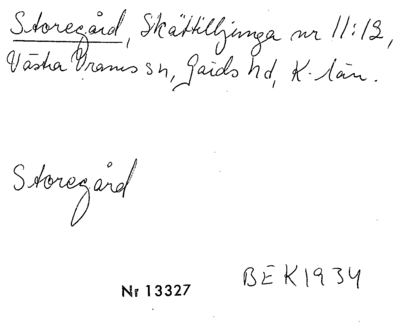 Storegård, Skättilljunga nr 11:12,
Västra Vrams sn, Gärds hd, K. län.
Storegård
Nr 13327
BEK1934